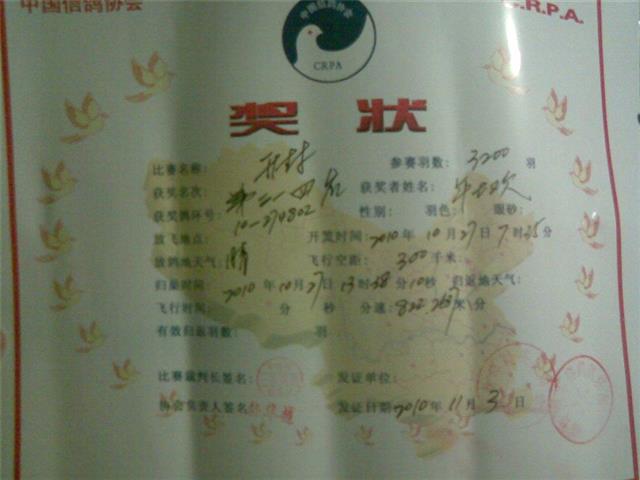 中国信鸽协会
C.R.P.A.
中国信鸽协会
CRPA
奖 状
比赛名称: 开封 参赛羽数: 3200 羽
获奖名次: 第二一四名 获奖者姓名:
获奖鸽环号: 10-274802 性别: 羽色: 眼砂:
放飞地点: 开笼时间: 2010 年 10 月 27 日 7 时 35 分
放鸽地天气: 晴 飞行空距: 300 千米
归巢时间: 2010 年 10 月 27 日 13 时 38 分 10 秒 归返地天气:
飞行时间: 分 秒 分速: 822.267 米\分
有效归返羽数: 羽
比赛裁判长签名: 发证单位:
协会负责人签名 发证日期 2010 年 11 月 3 日